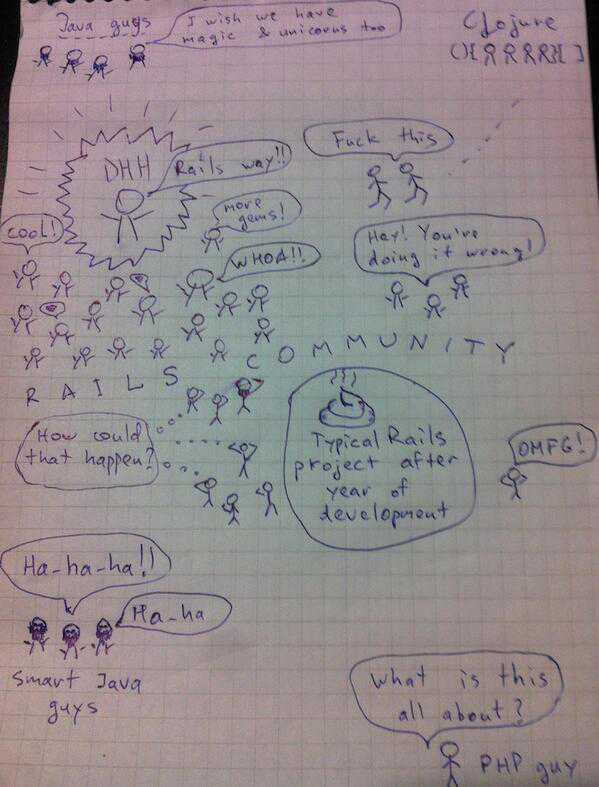 Java guys
I wish we have
magic & unicorns too
Clojure
(){ }[ ]
DHH
Rails way!!
Fuck this
more
gems!
COOL!
WHOA!!
Hey! You're
doing it wrong!
RAILS COMMUNITY
How could
that happen?
Typical Rails
project after
year of
development
OMFG!
Ha-ha-ha!!
Ha-ha
Smart Java
guys
What is this
all about?
PHP guy